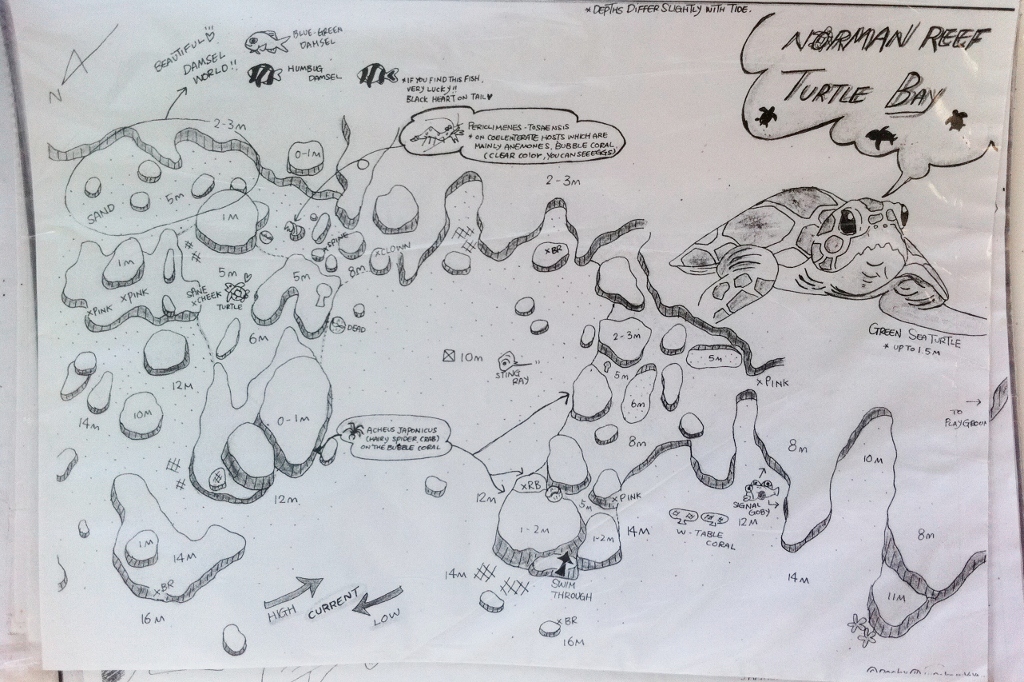 * DEPTHS DIFFER SLIGHTLY WITH TIDE.
NORMAN REEF
TURTLE BAY
N
BEAUTIFUL♡
DAMSEL
WORLD!!
BLUE-GREEN
DAMSEL
HUMBUG
DAMSEL
* IF YOU FIND THIS FISH,
VERY LUCKY!!
BLACK HEART ON TAIL♡
PERICLIMENES-TOSAENSIS
* ON COELENTERATE HOSTS WHICH ARE
MAINLY ANEMONES, BUBBLE CORAL
(CLEAR COLOR, YOU CAN SEE EGGS)
2-3M
0-1M
2-3M
SAND
5M
1M
XCLOWN
8M
XBR
1M
XPINK
XPINK
5M
SANE
XCHEEK
TURTLE
5M
DEAD
6M
10M
STING
RAY
2-3M
5M
5M
6M
XPINK
GREEN SEA TURTLE
* UP TO 1.5M
12M
14M
10M
0-1M
ACHEUS JAPONICUS
(HAIRY SPIDER CRAB)
ON THE BUBBLE CORAL
8M
8M
10M
TO
PLAYGROUND
12M
12M
XRB
XPINK
5M
1-2M
1-2M
14M
SIGNAL
GOBY
12M
W-TABLE
CORAL
8M
1M
14M
XBR
16M
14M
SWIM
THROUGH
14M
11M
HIGH
CURRENT
LOW
XBR
16M